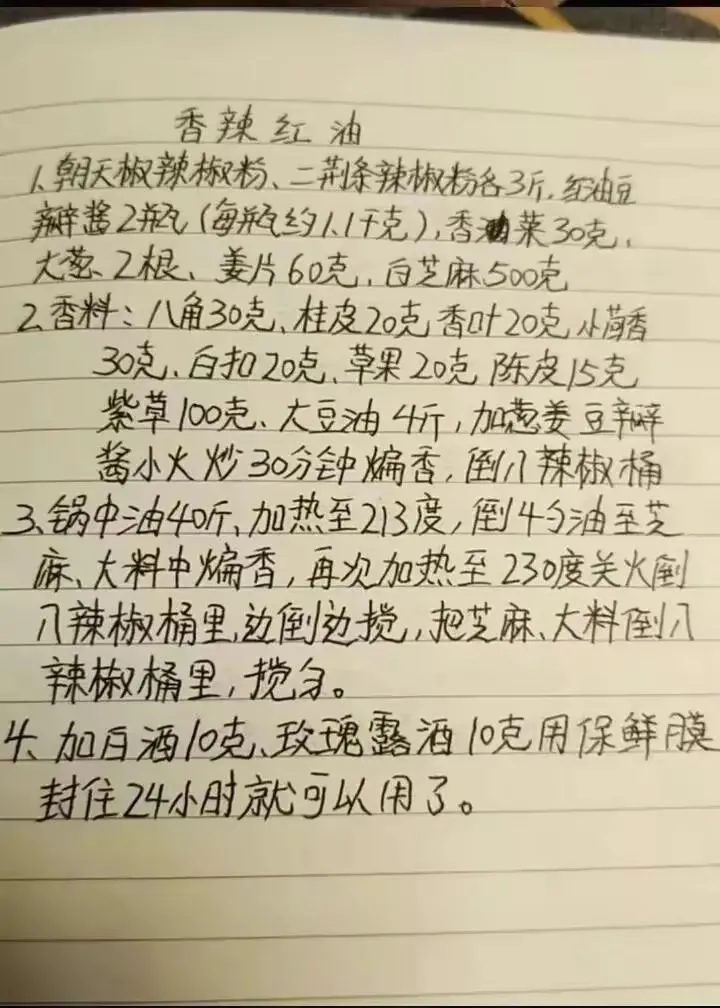 香辣红油
1、朝天椒辣椒粉、二荆条辣椒粉各3斤,红油豆
瓣酱2瓶(每瓶约1.1千克),香菜30克,
大葱、2根、姜片60克,白芝麻500克
2、香料:八角30克、桂皮20克香叶20克小茴香
30克、白扣20克、草果20克陈皮15克
紫草100克、大豆油4斤,加葱姜豆瓣
酱小火炒30分钟煸香,倒八辣椒桶
3、锅中油40斤、加热至213度,倒4勺油至芝
麻、大料中煸香,再次加热至230度关火倒
八辣椒桶里,边倒边搅,把芝麻、大料倒八
辣椒桶里,搅匀。
4、加白酒10克、玫瑰露酒10克用保鲜膜
封住24小时就可以用了。